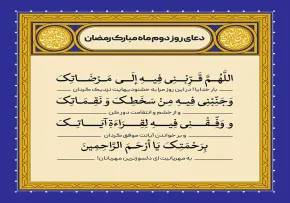 دعای روز دوم ماه مبارک رمضان
اللَّهُمَّ قَرِّبْنِي فِيهِ إِلَى مَرْضَاتِكَ
بار خدایا در این روز مرا به خشنودیهایت نزدیک گردان
وَجَنِّبْنِي فِيهِ مِنْ سَخَطِكَ وَ نَقِمَاتِكَ
و از خشم و انتقامت دور کن
و وَفِّقْنِي فِيهِ لِقِرَاءَةِ آيَاتِكَ
و بر خواندن آیاتت موفق گردان
بِرَحْمَتِكَ يَا أَرْحَمَ الرَّاحِمِينَ
به مهربانیت ای دلسوزترین مهربانان!